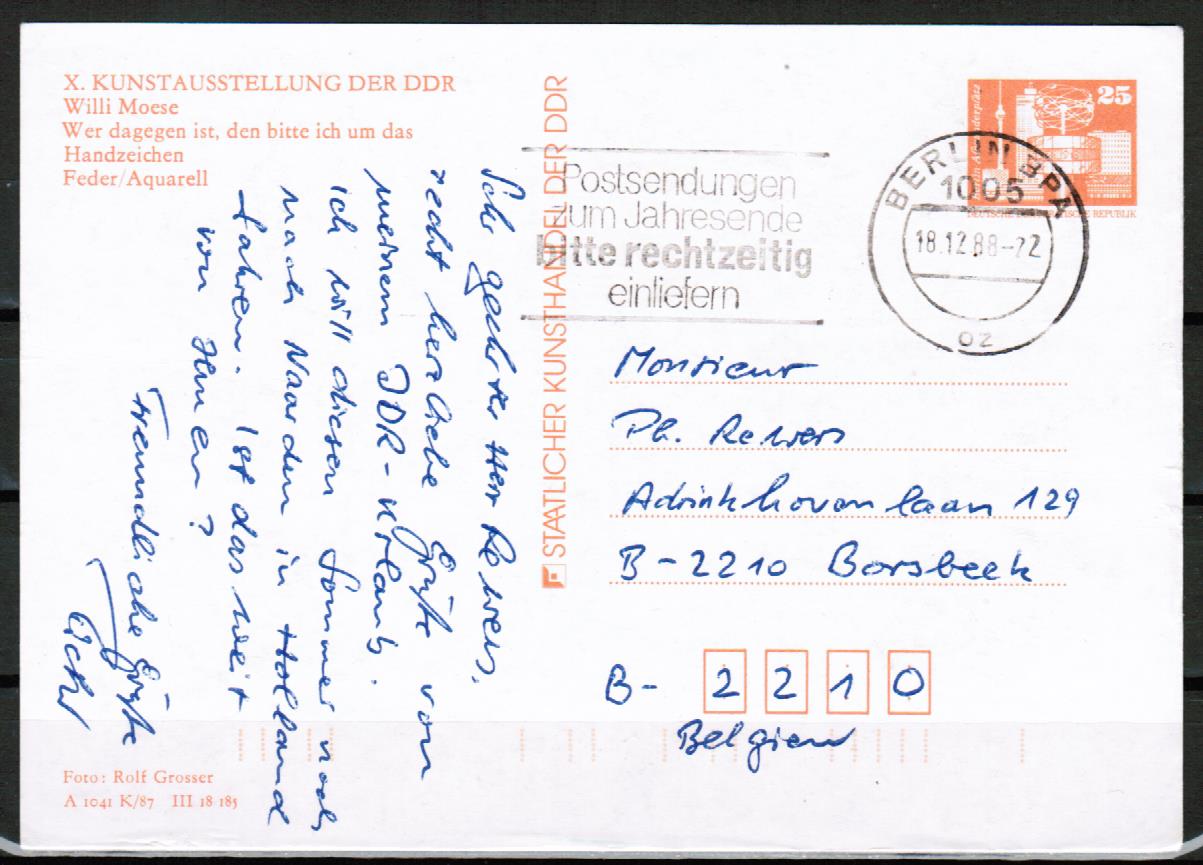 X. KUNSTAUSSTELLUNG DER DDR
Willi Moese
Wer dagegen ist, den bitte ich um das
Handzeichen
Feder/Aquarell
STAATLICHER KUNSTHANDEL DER DDR
Postsendungen
zum Jahresende
bitte rechtzeitig
einliefern
BERLIN BPA
1005
18.12.88-22
oz
25
DEUTSCHE DEMOKRATISCHE REPUBLIK
Sehr geehrter Herr Rewers,
recht herzliche Grüße von
meinem DDR-Urlaub.
Ich will diesen Sommer noch
nach Naarden in Holland
fahren. Ist das weit
von Ihnen?
Freundliche Grüße
Monsieur
Ph. Rewers
Adrinkhovenlaan 129
B-2210 Borsbeek
B- 2 2 1 0
Belgien
Foto: Rolf Grosser
A 1041 K/87 III 18 185